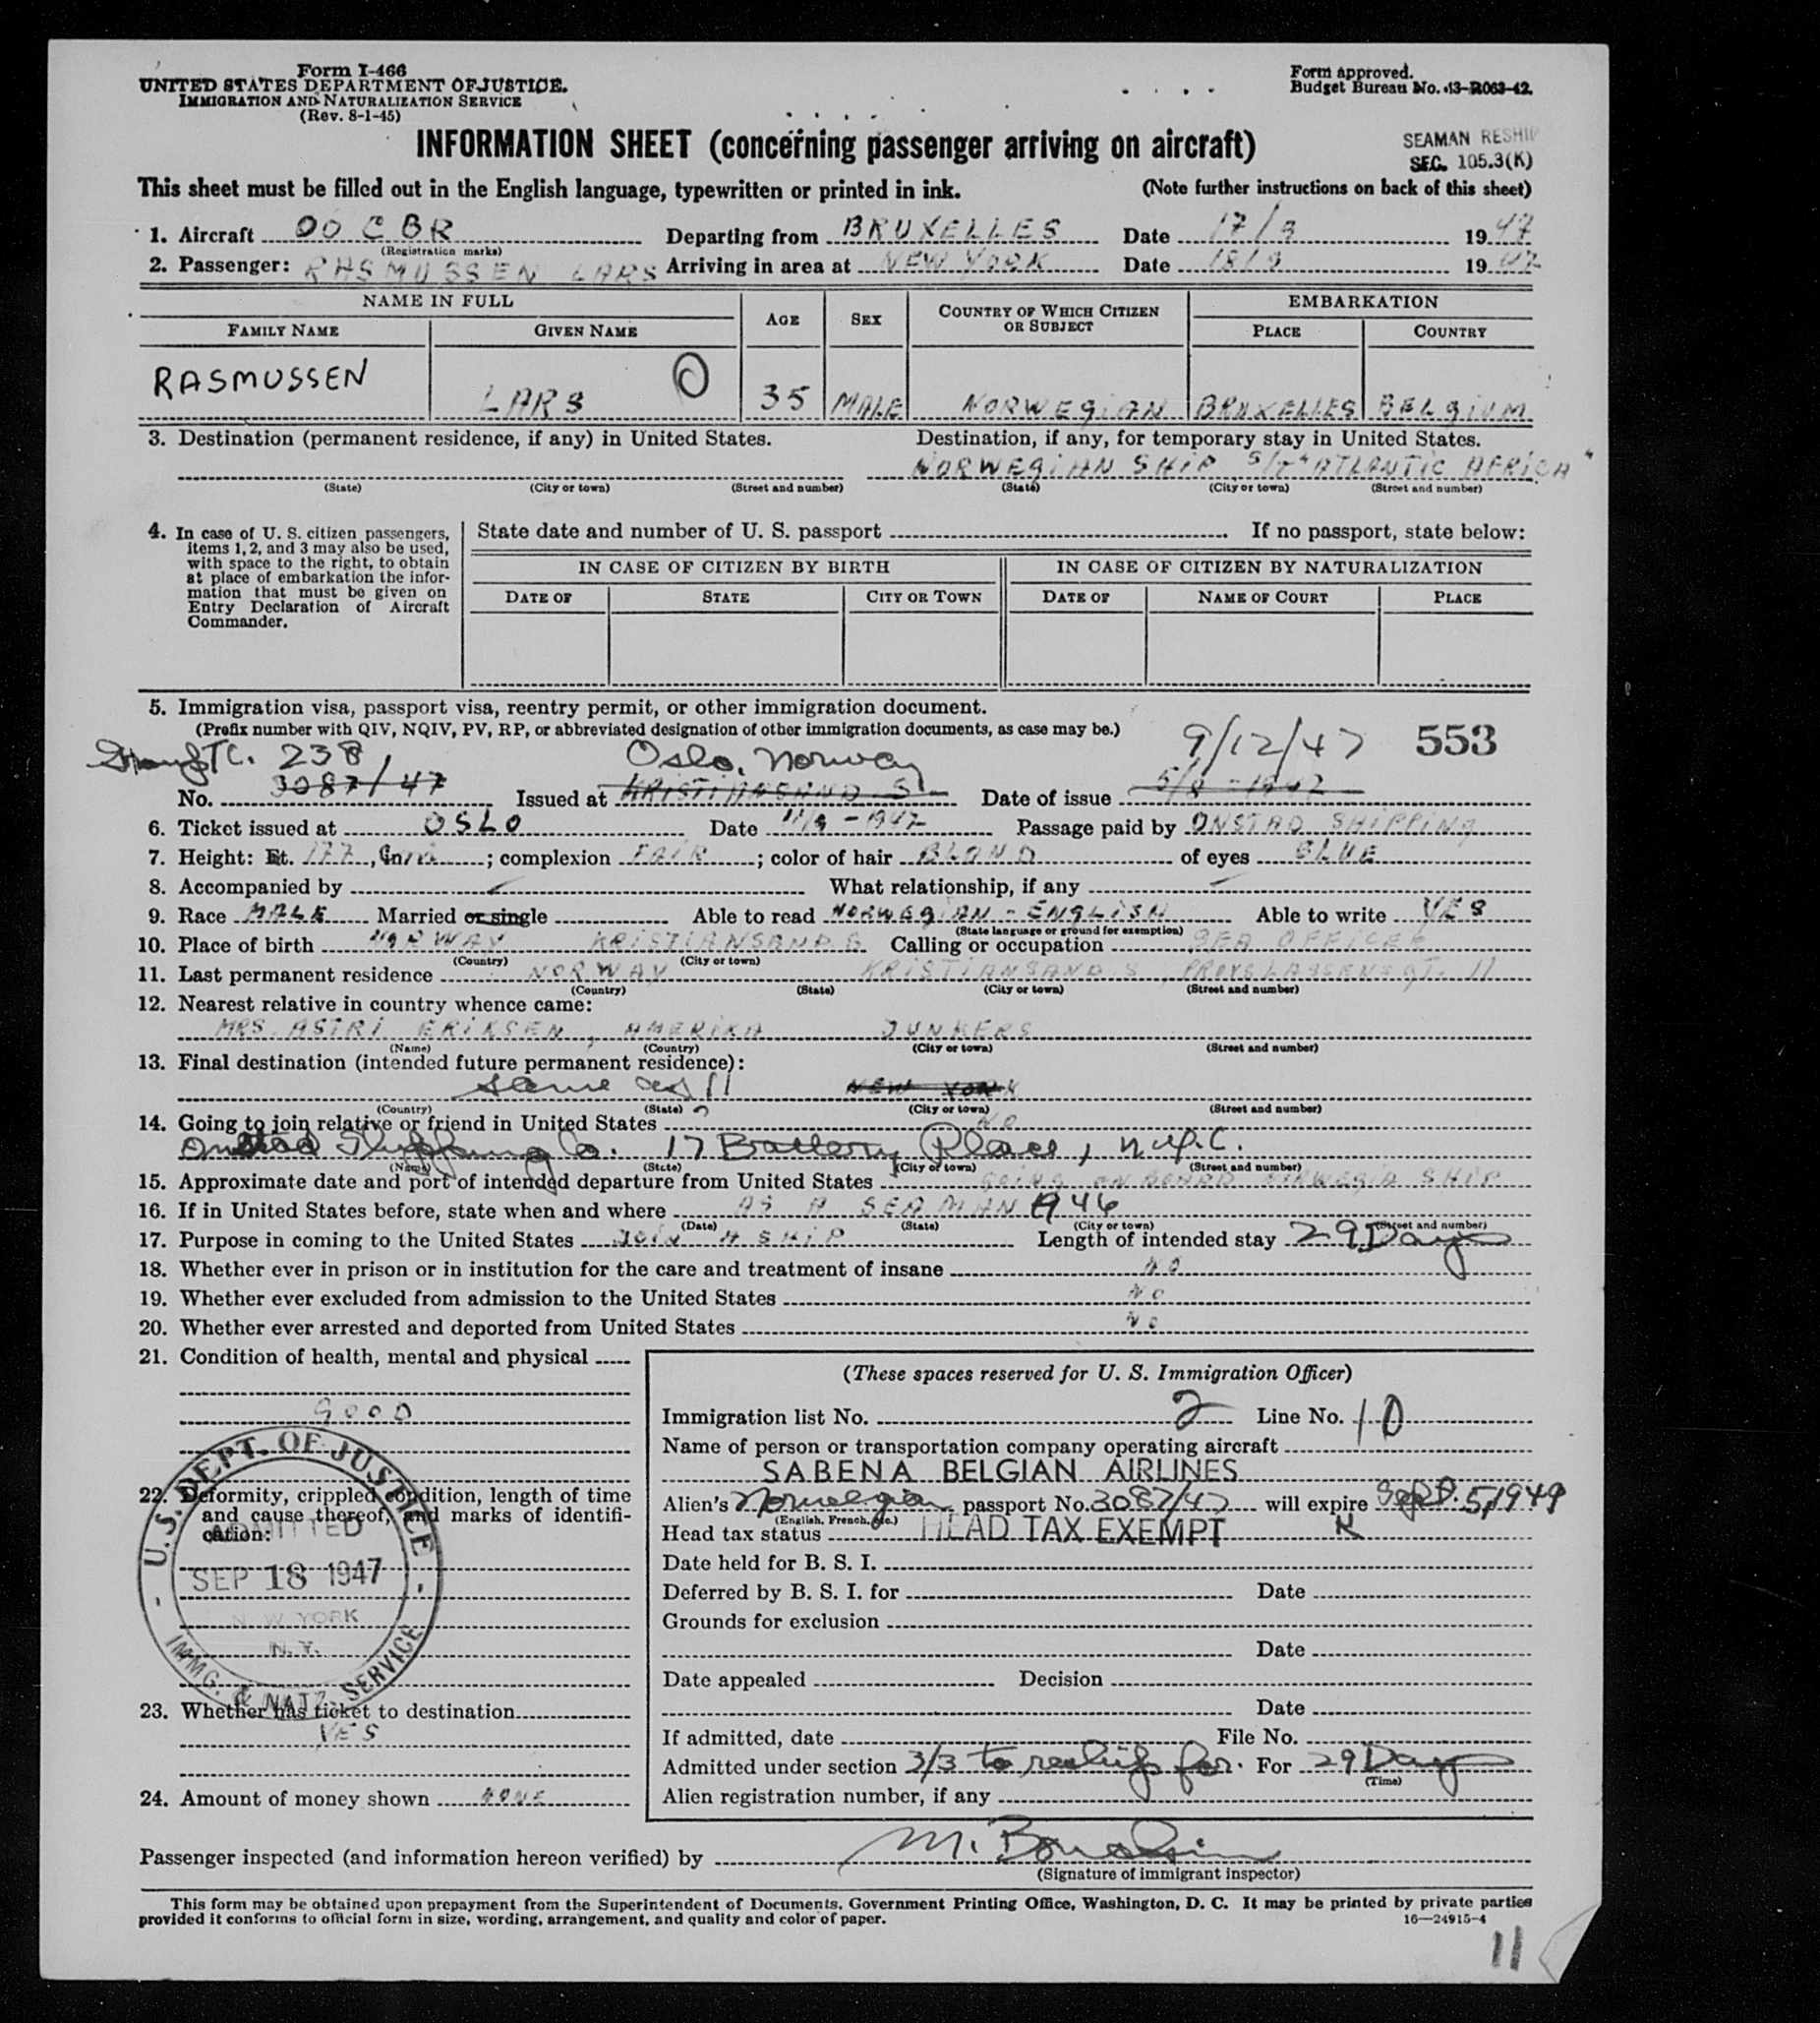 Form I-466
UNITED STATES DEPARTMENT OF JUSTICE.
IMMIGRATION AND NATURALIZATION SERVICE
(Rev. 8-1-45)
Form approved.
Budget Bureau No. 43-R063-42.
INFORMATION SHEET (concerning passenger arriving on aircraft)
SEAMAN RESHIP
SEC. 105.3(K)
This sheet must be filled out in the English language, typewritten or printed in ink. (Note further instructions on back of this sheet)
1. Aircraft OO CBR Departing from BRUXELLES Date 17/9 1947
(Registration marks)
2. Passenger: RASMUSSEN LARS Arriving in area at NEW YORK Date 18/9 1947
NAME IN FULL AGE SEX COUNTRY OF WHICH CITIZEN OR SUBJECT EMBARKATION
FAMILY NAME GIVEN NAME PLACE COUNTRY
RASMUSSEN LARS 35 MALE NORWEGIAN BRUXELLES BELGIUM
3. Destination (permanent residence, if any) in United States. Destination, if any, for temporary stay in United States.
NORWEGIAN SHIP S/T "ATLANTIC AFRICA"
(State) (City or town) (Street and number) (State) (City or town) (Street and number)
4. In case of U. S. citizen passengers, items 1, 2, and 3 may also be used, with space to the right, to obtain at place of embarkation the information that must be given on Entry Declaration of Aircraft Commander.
State date and number of U. S. passport If no passport, state below:
IN CASE OF CITIZEN BY BIRTH IN CASE OF CITIZEN BY NATURALIZATION
DATE OF STATE CITY OR TOWN DATE OF NAME OF COURT PLACE
5. Immigration visa, passport visa, reentry permit, or other immigration document.
(Prefix number with QIV, NQIV, PV, RP, or abbreviated designation of other immigration documents, as case may be.)
TC. 238 Oslo, Norway 9/12/47 553
No. 3087/47 Issued at KRISTIANSAND S Date of issue 5/9-1947
6. Ticket issued at OSLO Date 11/9-1947 Passage paid by ONSTAD SHIPPING
7. Height: Ft. 177, In. ; complexion FAIR ; color of hair BLOND of eyes BLUE
8. Accompanied by What relationship, if any
9. Race MALE Married or single Able to read NORWEGIAN - ENGLISH Able to write YES
(State language or ground for exemption)
10. Place of birth NORWAY KRISTIANSAND S. Calling or occupation SEA OFFICER
(Country) (City or town)
11. Last permanent residence NORWAY KRISTIANSAND S, 11
(Country) (State) (City or town) (Street and number)
12. Nearest relative in country whence came:
MRS. ASTRI ERIKSEN, AMERIKA JUNKERS
(Name) (Country) (City or town) (Street and number)
13. Final destination (intended future permanent residence):
same as 11 NEW YORK
(Country) (State) (City or town) (Street and number)
14. Going to join relative or friend in United States NO
Onstad Shipping Co. 17 Battery Place, N.Y.C.
(Name) (State) (City or town) (Street and number)
15. Approximate date and port of intended departure from United States GOING ON BOARD NORWEGIA SHIP
16. If in United States before, state when and where AS A SEAMAN 1946
(Date) (State) (City or town) (Street and number)
17. Purpose in coming to the United States JOIN A SHIP Length of intended stay 29 Days
18. Whether ever in prison or in institution for the care and treatment of insane NO
19. Whether ever excluded from admission to the United States NO
20. Whether ever arrested and deported from United States NO
21. Condition of health, mental and physical
GOOD
22. Deformity, crippled condition, length of time and cause thereof, and marks of identification:
U.S. DEPT. OF JUSTICE
ADMITTED
SEP 18 1947
NEW YORK
N.Y.
IMMG. & NATZ. SERVICE
23. Whether has ticket to destination
YES
24. Amount of money shown NONE
(These spaces reserved for U. S. Immigration Officer)
Immigration list No. 2 Line No. 10
Name of person or transportation company operating aircraft
SABENA BELGIAN AIRLINES
Alien's Norwegian passport No. 3087/47 will expire Sept. 5, 1949
(English, French, etc.)
Head tax status HEAD TAX EXEMPT K
Date held for B. S. I.
Deferred by B. S. I. for Date
Grounds for exclusion
Date
Date appealed Decision
Date
If admitted, date File No.
Admitted under section 3/3 to reship for. For 29 Days
(Time)
Alien registration number, if any
Passenger inspected (and information hereon verified) by M.
(Signature of immigrant inspector)
This form may be obtained upon prepayment from the Superintendent of Documents, Government Printing Office, Washington, D. C. It may be printed by private parties
provided it conforms to official form in size, wording, arrangement, and quality and color of paper. 16—24915-4
11